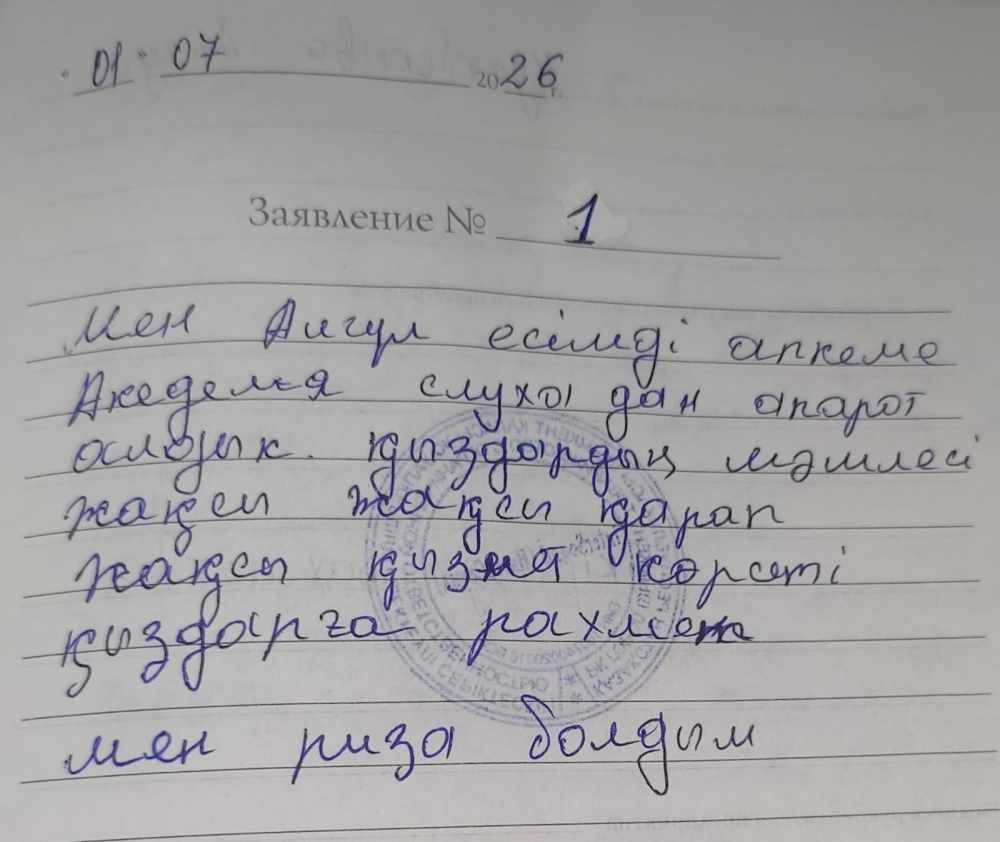 01. 07 2026 г.
Заявление № 1
Мен Аигул есімді апкеме
Акедемя слухо дан апарот
аслодык. қыздардың мәмлесі
жақсы жақсы қарап
жақсы қызмет көрсеті
қыздарға рахмет
мен риза болдым